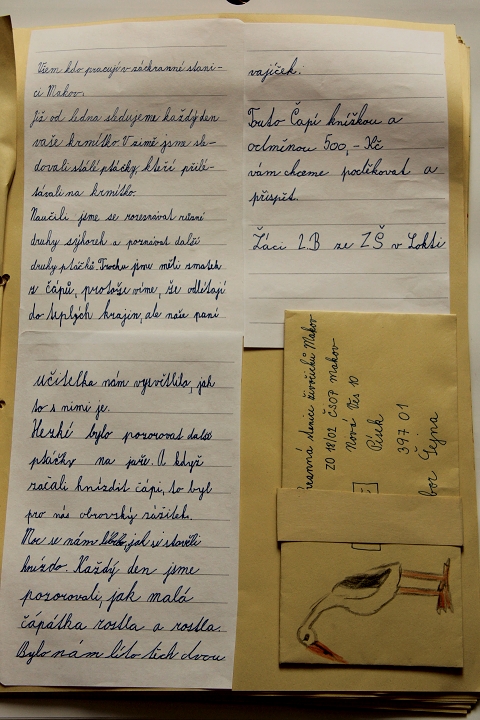 Všem kdo pracují v záchranné stani-
ci Makov.
Již od ledna sledujeme každý den
vaše krmítko. V zimě jsme sle-
dovali stálé ptáčky, kteří přilé-
távali na krmítko.
Naučili jsme se rozeznávat různé
druhy sýkorek a poznávat další
druhy ptáčků. Trochu jsme měli zmatek
z čápů, protože víme, že odlétají
do teplých krajin, ale naše paní
učitelka nám vysvětlila, jak
to s nimi je.
Hezké bylo pozorovat další
ptáčky na jaře. A když
začali hnízdit čápi, to byl
pro nás obrovský zážitek.
Moc se nám líbilo, jak si stavěli
hnízdo. Každý den jsme
pozorovali, jak malá
čápátka rostla a rostla.
Bylo nám líto těch dvou
vajíček.
Touto Čapí knížkou a
odměnou 500,- Kč
vám chceme poděkovat a
přispět.
Žáci 2.B ze ZŠ v Lokti
stanice živočichů Makov
ZO 18/02 ČSOP Makov
Nová Ves 10
Písek
397 01
Šejna